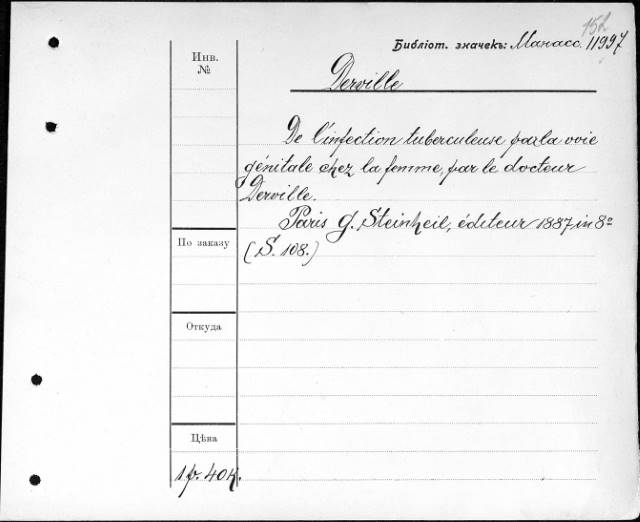 Библіот. значекъ: Манасс. 11997
Инв.
№
Derville
De l'infection tuberculeuse par la voie
génitale chez la femme, par le docteur
Derville.
Paris G. Steinheil, éditeur 1887 in 8º
(S. 108.)
По заказу
Откуда
Цѣна
1 р. 40 к.